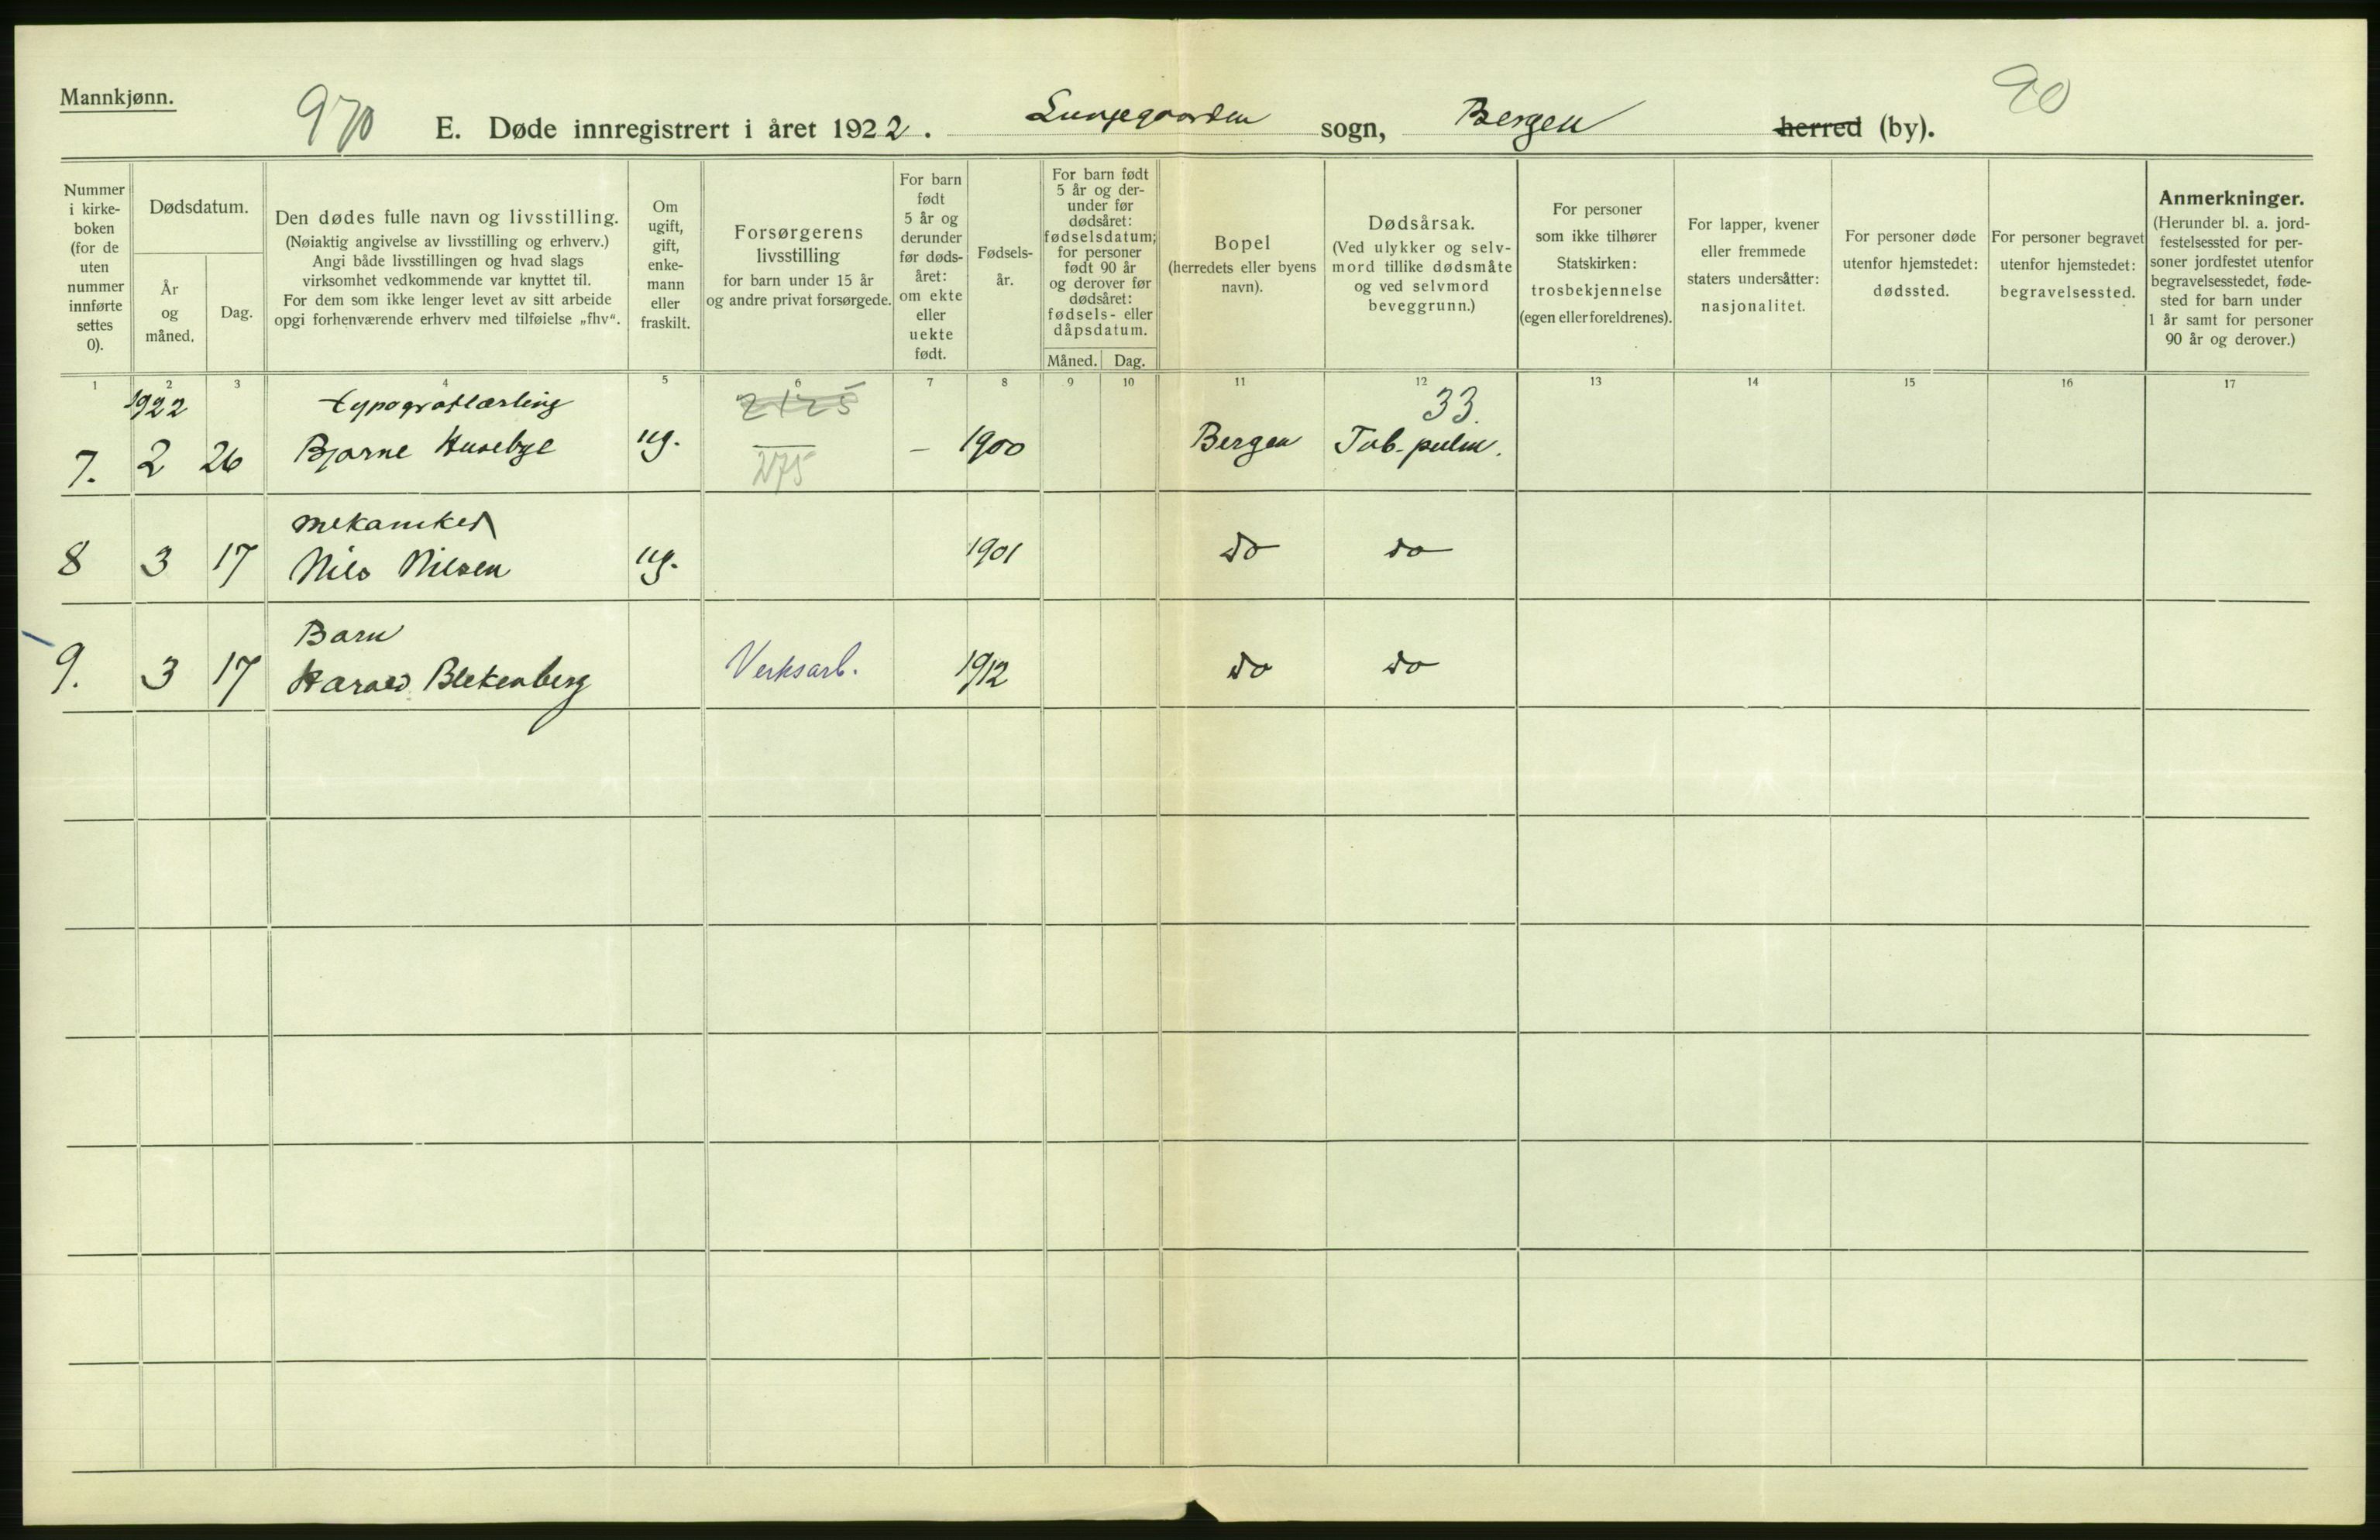 Mannkjønn.
970
90
E. Døde innregistrert i året 1922. Lungegaarden sogn, Bergen herred (by).
Nummer
i kirke-
boken
(for de
uten
nummer
innførte
settes
0).
Dødsdatum.
År
og
måned.
Dag.
Den dødes fulle navn og livsstilling.
(Nøiaktig angivelse av livsstilling og erhverv.)
Angi både livsstillingen og hvad slags
virksomhet vedkommende var knyttet til.
For dem som ikke lenger levet av sitt arbeide
opgi forhenværende erhverv med tilføielse „fhv“.
Om
ugift,
gift,
enke-
mann
eller
fraskilt.
Forsørgerens
livsstilling
for barn under 15 år
og andre privat forsørgede.
For barn
født
5 år og
derunder
før døds-
året:
om ekte
eller
uekte
født.
Fødsels-
år.
For barn født
5 år og der-
under før
dødsåret:
fødselsdatum;
for personer
født 90 år
og derover før
dødsåret:
fødsels- eller
dåpsdatum.
Måned. Dag.
Bopel
(herredets eller byens
navn).
Dødsårsak.
(Ved ulykker og selv-
mord tillike dødsmåte
og ved selvmord
beveggrunn.)
For personer
som ikke tilhører
Statskirken:
trosbekjennelse
(egen eller foreldrenes).
For lapper, kvener
eller fremmede
staters undersåtter:
nasjonalitet.
For personer døde
utenfor hjemstedet:
dødssted.
For personer begravet
utenfor hjemstedet:
begravelsessted.
Anmerkninger.
(Herunder bl. a. jord-
festelsessted for per-
soner jordfestet utenfor
begravelsesstedet, føde-
sted for barn under
1 år samt for personer
90 år og derover.)
1 2 3 4 5 6 7 8 9 10 11 12 13 14 15 16 17
1922 typograflærling 2125 33.
7. 2 26 Bjarne Husebye ug. — – 1900 Bergen Tub. pulm.
275
mekaniker
8 3 17 Nils Nilsen ug. 1901 do do
Barn
9. 3 17 Harald Blekenberg Verksarb. 1912 do do